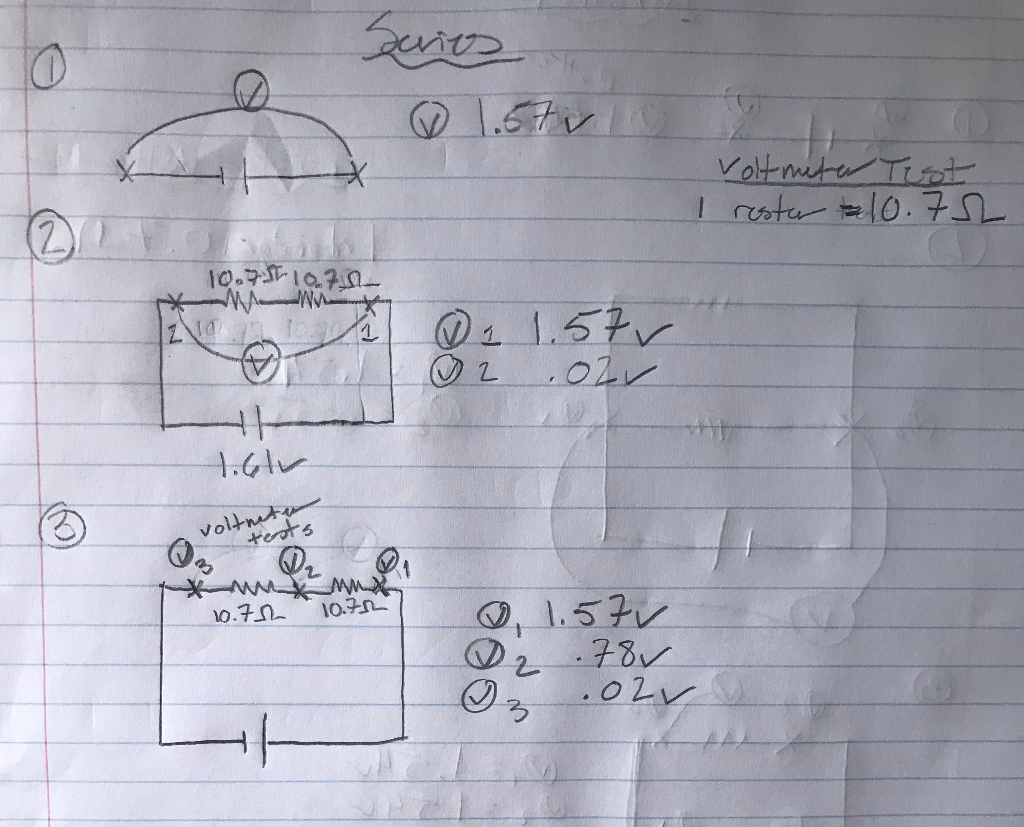 Series
①
Ⓥ
Ⓥ 1.57v
Voltmeter Test
1 = 10.7Ω
②
10.7Ω 10.7Ω
2 1
Ⓥ
Ⓥ1 1.57v
Ⓥ2 .02v
1.61v
③
voltmeter
tests
Ⓥ3 Ⓥ2 Ⓥ1
10.7Ω 10.7Ω
Ⓥ1 1.57v
Ⓥ2 .78v
Ⓥ3 .02v